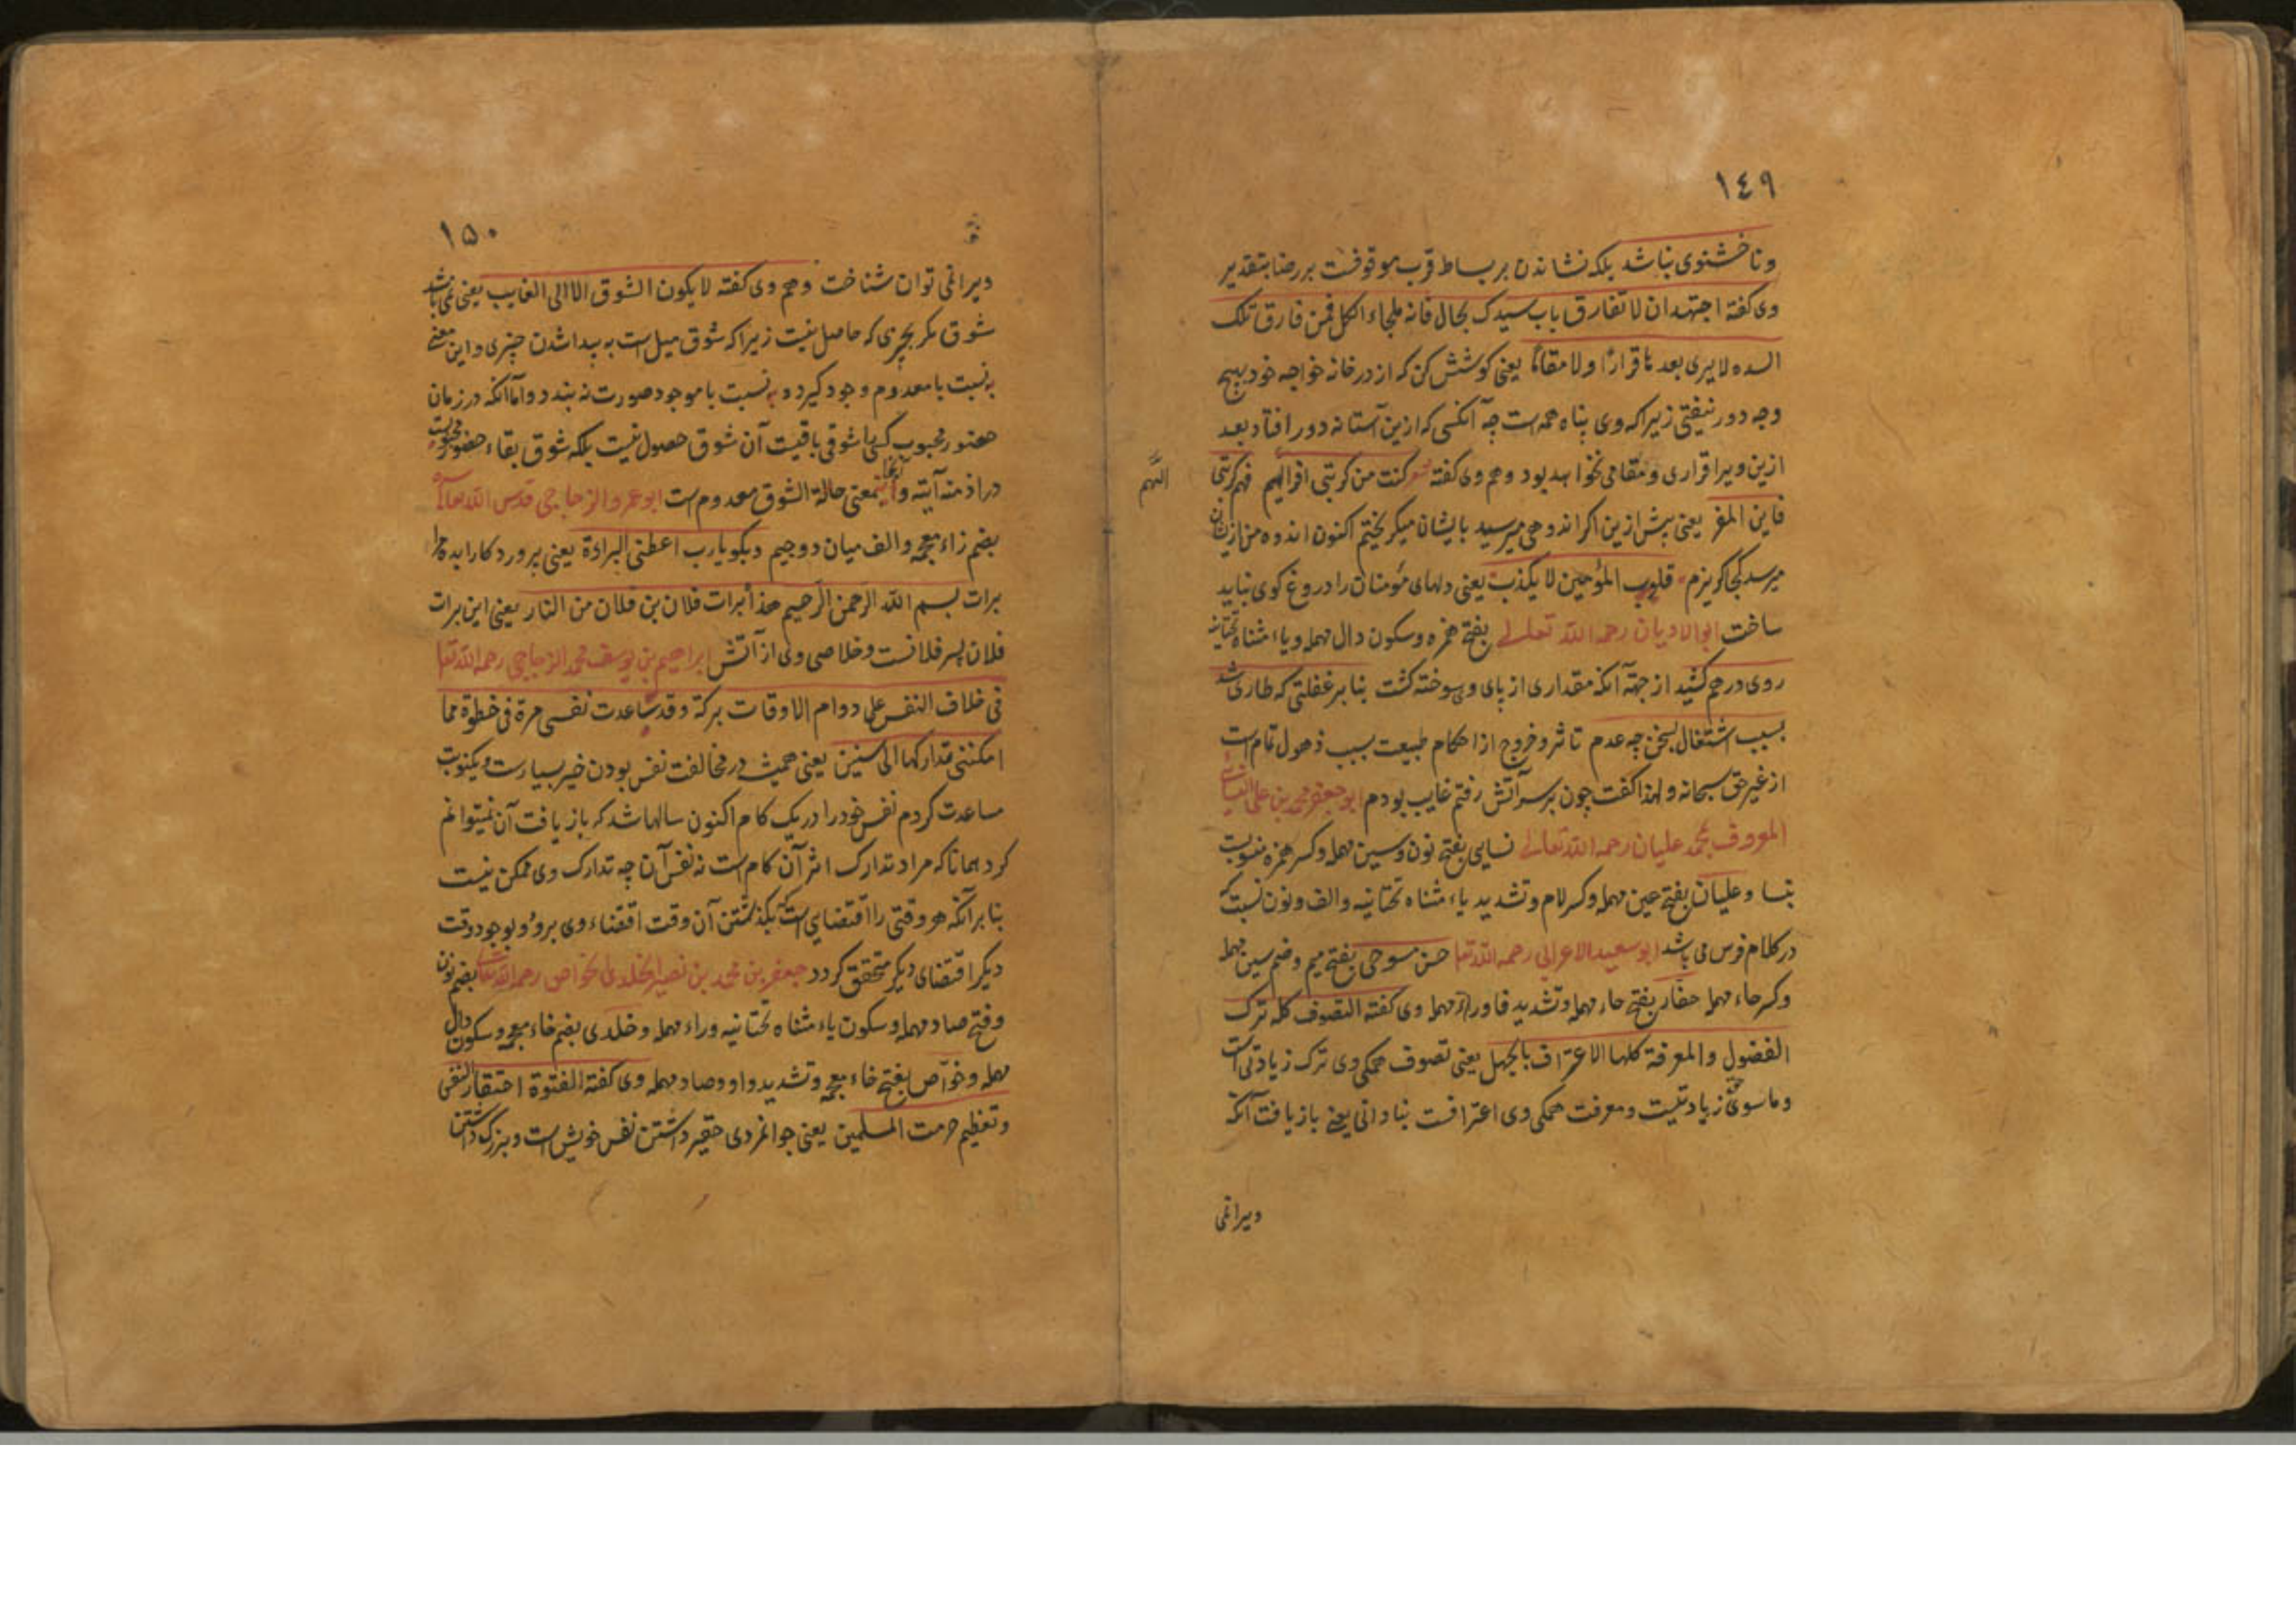 ١٤٩
و ناخشنودی نباشد بلکه نشاندن بر بساط قرب موقوفست بر رضا بتقدیر
وی گفته اجتهد ان لا تفارق باب سیدک بحال فانه ملجاء الکل فمن فارق تلک
السده لا یری بعدها قرارًا ولا مقامًا یعنی کوشش کن که از در خانه خواجه خود بهیچ
وجه دور نیفتی زیرا که وی پناه همه است چه آنکسی که ازین آستانه دور افتاد بعد
ازین ویرا قراری و مقامی نخواهد بود و هم وی گفته شعر کنت من کربتی افر الیهم فهم کربتی
الیهم
فاین المفر یعنی پیش ازین اگر اندوهی میرسید بایشان میگریختم اکنون اندوه من ازیشان
میرسد کجا گریزم قلوب المؤمنین لا یکذب یعنی دلهای مؤمنان را دروغ گوی نباید
ساخت ابو الادیان رحمه الله تعالی بفتح همزه و سکون دال مهمله و یاء مثناه تحتانیه
روی درهم کشید از جهة آنکه مقداری از پای وی سوخته گشت بنا بر غفلتی که طاری شد
بسبب اشتغال بسخن چه عدم تاثر و خروج از احکام طبیعت بسبب ذهول تمام است
از غیر حق سبحانه و لهذا گفت چون بر سر آتش رفتم غایب بودم ابو جعفر محمد بن علی النسائی
المعروف بمحمد علیان رحمه الله تعالی نسایی بفتح نون و سین مهمله و کسر همزه منسوبست
بنسا و علیان بفتح عین مهمله و کسر لام و تشدید یاء مثناه تحتانیه و الف و نون نسبت که
در کلام فرس می باشد ابو سعید الاعرابی رحمه الله تعا حسن مسوحی بفتح میم و ضم سین مهمله
و کسر حاء مهمله حفار بفتح حاء مهمله و تشدید فا و راء مهمله وی گفته التصوف کله ترک
الفضول و المعرفة کلها الاعتراف بالجهل یعنی تصوف همگی وی ترک زیادتی است
و ماسوی حق زیادتیست و معرفت همگی وی اعترافست بنادانی یعنی بازیافت آنکه
ویرا نمی
١٥٠
ویرا نمی توان شناخت و هم وی گفته لا یکون الشوق الا الی الغایب یعنی نمی باشد
شوق مگر بچیزی که حاصل نیست زیرا که شوق میل است به پیدا شدن چیزی و این معنی
به نسبت با معدوم وجود گیرد و به نسبت با موجود صورت نه بندد و اما آنکه در زمان
حضور محبوب کسی را شوقی باقیست آن شوق حصول نیست بلکه شوق بقاء حضور محبوبست
در ازمنه آتیه و آنها بمعنی حالة الشوق معدوم است ابو عمرو الزجاجی قدس الله تعا
بضم زاء معجمه و الف میان دو جیم و بگو یارب اعطنی البراءة یعنی پروردکارا بده مرا
برات بسم الله الرحمن الرحیم هذا برات فلان بن فلان من النار یعنی این برات
فلان پسر فلانست و خلاصی وی از آتش ابراهیم بن یوسف محمد الزجاجی رحمه الله تعا
فی خلاف النفس علی دوام الاوقات برکة و قد ساعدت نفسی مرة فی خطوة مما
امکننی تدارکها الی سنین یعنی همیشه در مخالفت نفس بودن خیر بسیار است و یکنوبت
مساعدت کردم نفس خود را در یک کام اکنون سالها شد که بازیافت آن نمیتوانم
کرد همانا که مراد تدارک اثر آن کام است نه نفس آن چه تدارک وی ممکن نیست
بنا بر آنکه هر وقتی را اقتضایی است که بگذشتن آن وقت اقتضاء وی برود و بوجود وقت
دیگر اقتضای دیگر متحقق گردد جعفر بن محمد بن نصیر الخلدی الخواص رحمه الله تعا بضم نون
و فتح صاد مهمله و سکون یاء مثناه تحتانیه و راء مهمله و خلدی بضم خاء معجمه و سکون دال
مهمله و خوّاص بفتح خاء معجمه و تشدید واو و صاد مهمله وی گفته الفتوة احتقار النفس
و تعظیم حرمت المسلمین یعنی جوانمردی حقیر داشتن نفس خویش است و بزرگ داشتن